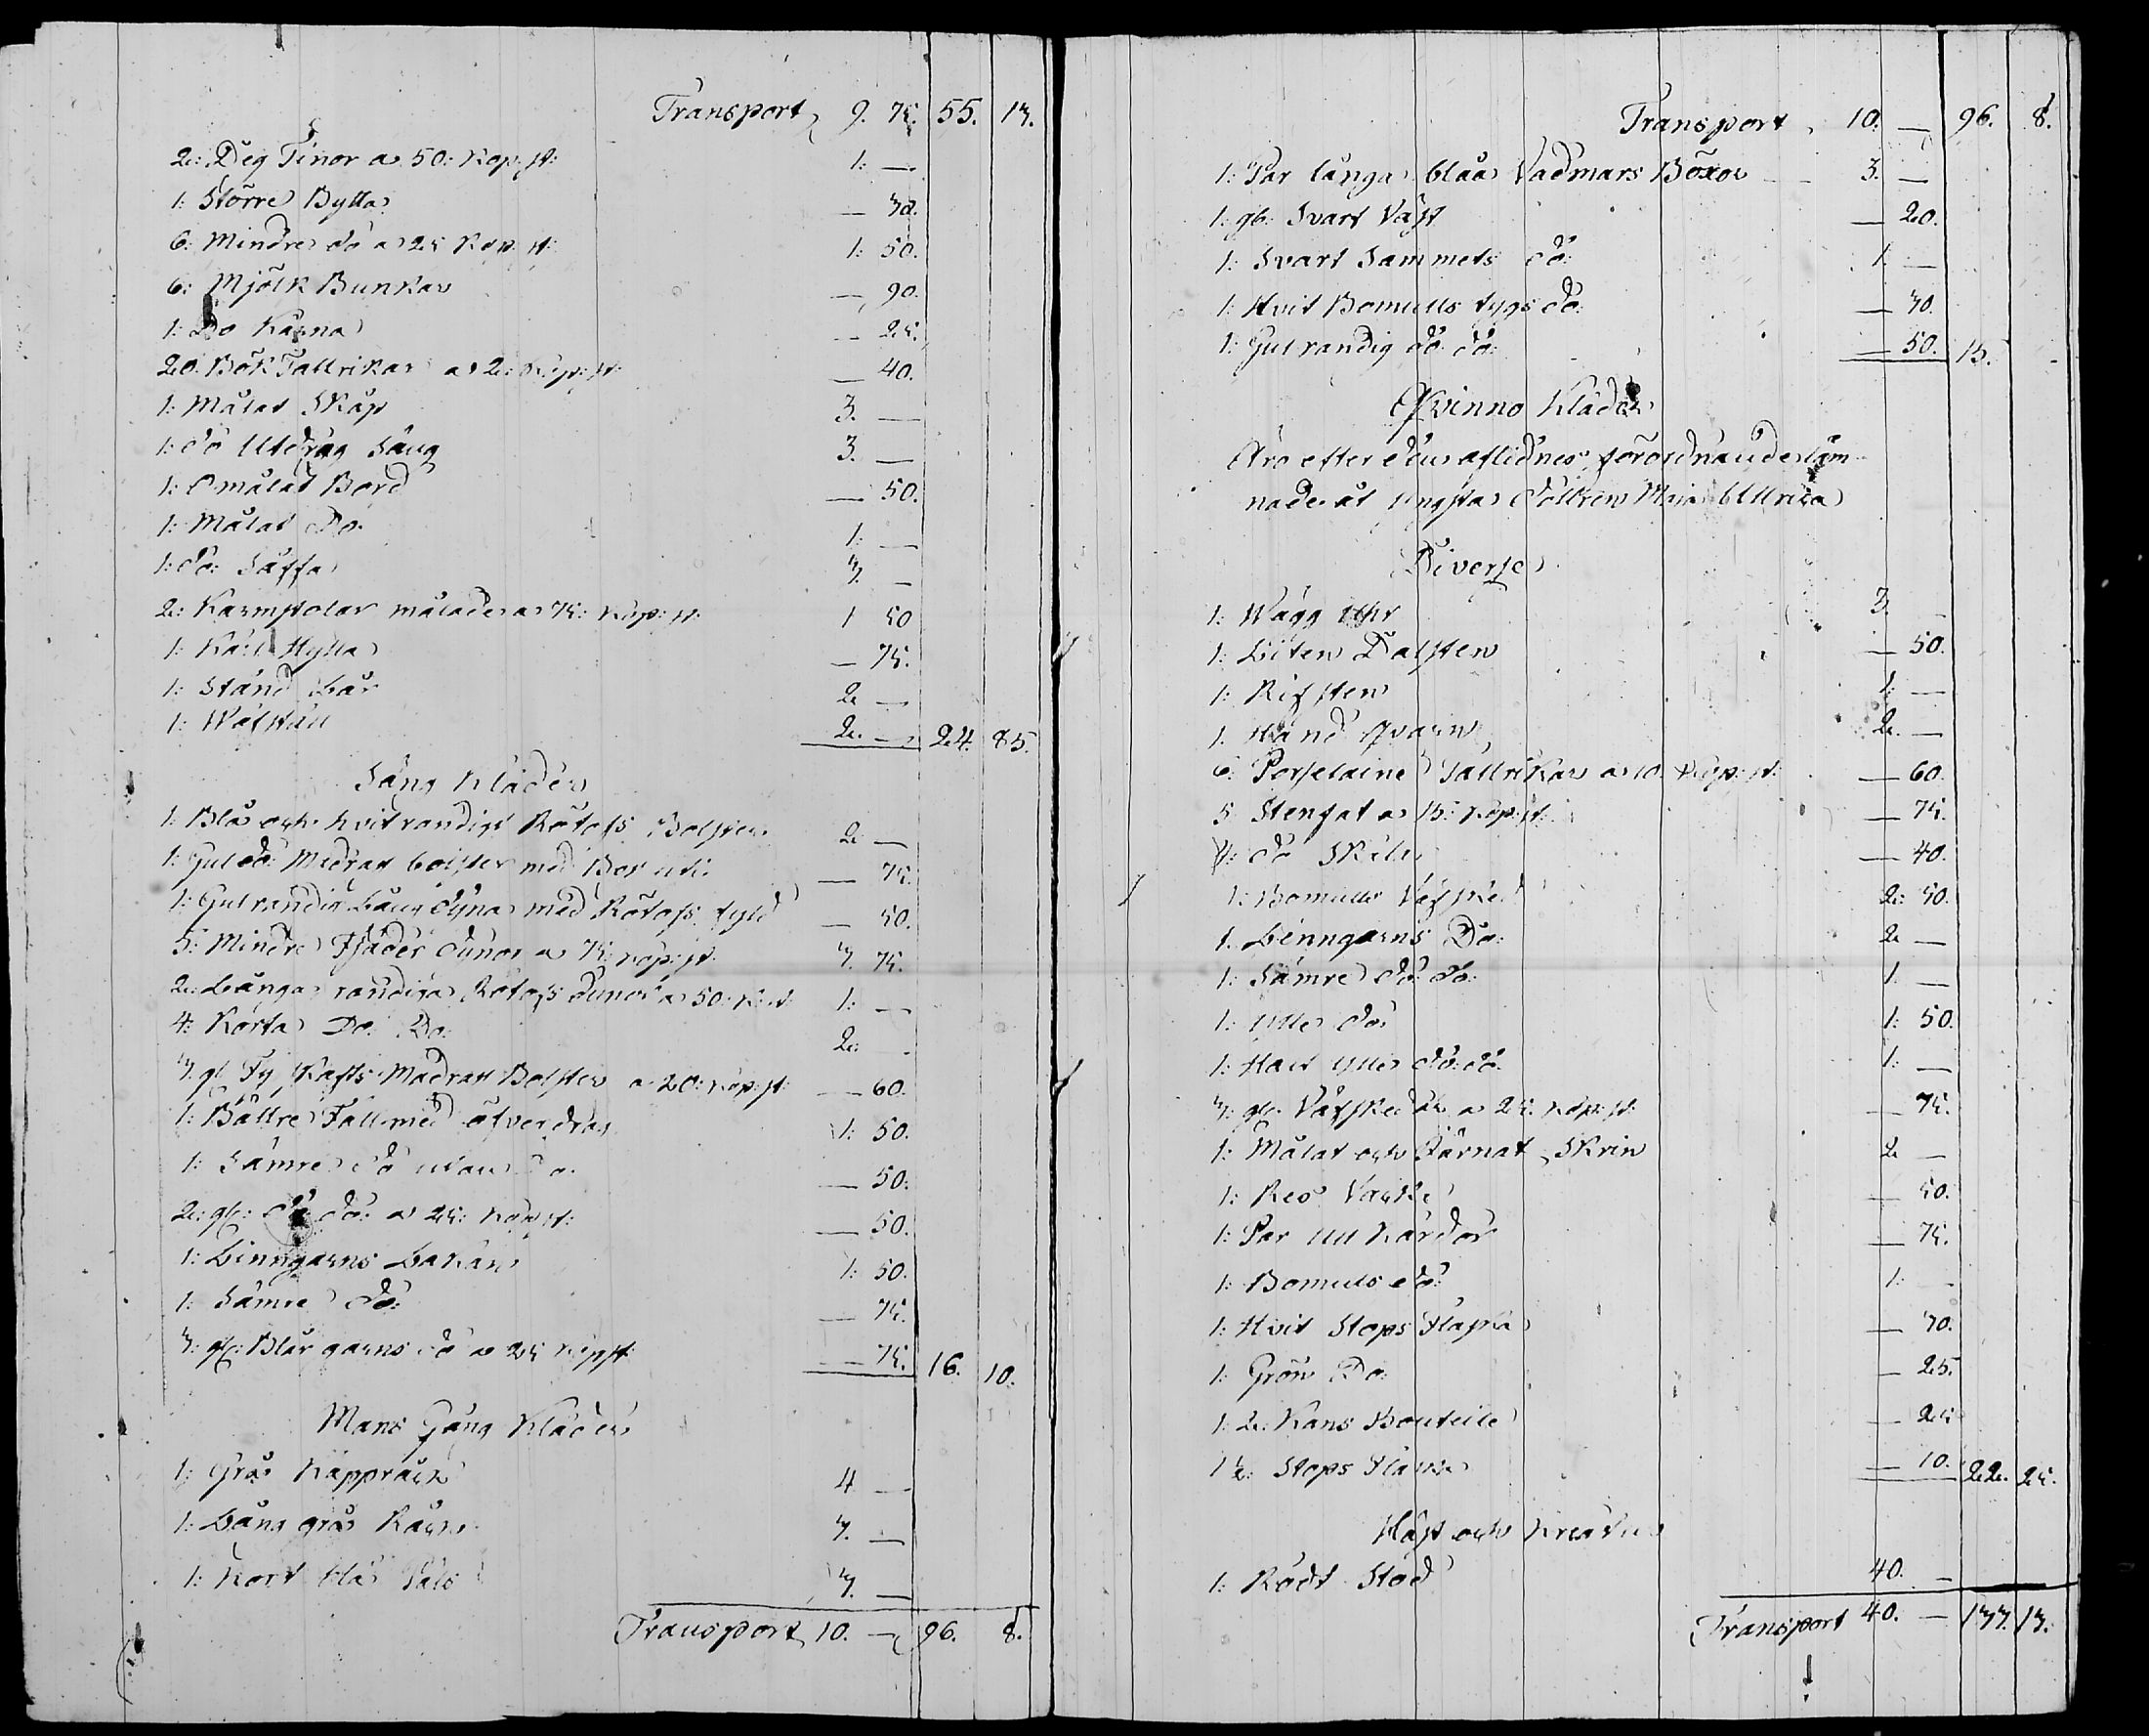 Transport 9. 75. 55. 13.
2: Deg Tinor a 50: Kop: st: 1: —
1: Större Bytta — 30.
6: Mindre do a 25 Kop: st: 1: 50.
6: Mjölk Bunkar — 90.
1: Do Kärna — 25.
20. Bök Tallrikar a 2: Kop: st: — 40.
1: Målat Skåp 3. —
1: do Utdrag Säng 3. —
1: Omålat Bord — 50.
1: Målat Do. 1: —
1: do: Saffa 3. —
2: Karmstolar målade a 75: Kop: st: 1 50
1: Kärl Hylla — 75.
1: Stånd 2 —
1: Wäfställ 2. — 24. 85.
Säng Kläder
1: Blå och hvitrandigt Rötofs Bolster 2 —
1: Gul do: Madrat bolster med Bos uti — 75.
1: Gulrandig Lång dyna med Rötofs fyld — 50.
5: Mindre Fjäder dynor a 75: kop: st: 3. 75.
2: Långa randiga Rötofs dynor a 50: K: st: 1: —
4: Korta Do. Do: 2: -
3: gl Ty Madratt Bolster a 20: kop: st: — 60.
1: Bättre Fäll med öfverdrag 1: 50.
1: Sämre do utan Do. — 50.
2: gl: do do: a 25: Kop st: — 50.
1: Linngarns Lakan 1: 50.
1: Sämre do: — 75.
3: gl: Blår garns do a 25 kop st: — 75. 16. 10.
Mans Gång Kläder
1: Grå Kappråck 4 —
1: Lång grå Råck 3. —
1: Kort blå 3. —
Transport 10. — 96. 8.
Transport 10. — 96. 8.
1: Par långa blåa Vadmars Böxor 3. —
1: gl: Svart Väst — 20.
1: Svart Sammets do: 1. —
1: Hvit Bomulls tygs do: — 30.
1: Gul randig do do: — 50. 15. -
Qvinno Kläder
Äro efter den aflidnes förordnande läm
nade åt yngsta dottren Maja Ullrica
Diverse
1: Wägg Uhr 3. —
1: Liten Dalsten — 50.
1: Rifsten 1: —
1. Hand Qvarn 2. —
6: Porselaine Tallrikar a 10. Kop: st: — 60.
5 Stenfat a 15: Kop: st: — 75.
4: do Skålar — 40.
1: Bomulls Väfsked 2: 50.
1. Linngarns Do: 2 —
1: Sämre do: do: 1. —
1: Ylle do: 1: 50.
1: Half ylle do: do. 1: —
3: gl: Väfskedar a 25: kop: st: — 75.
1: Målat och Järnat Skrin 2 —
1: — 50.
1: Par Ull Kardor — 75.
1: Bomuls do: 1: -
1: Hvit Stops Flaska — 30.
1: Grön Do: — 25.
1: 2: Kans Bouteile — 25
1 ½: Stops Flaska — 10. 22. 25.
Häst och Kreatur
1: Rödt Stod 40. —
Transport 40. — 133. 13.